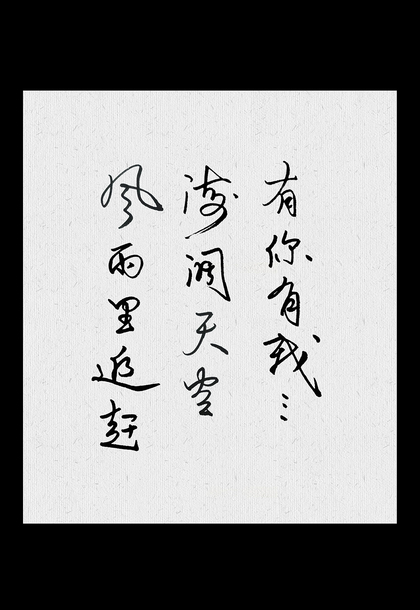 有你有我…
海阔天空
风雨里追赶